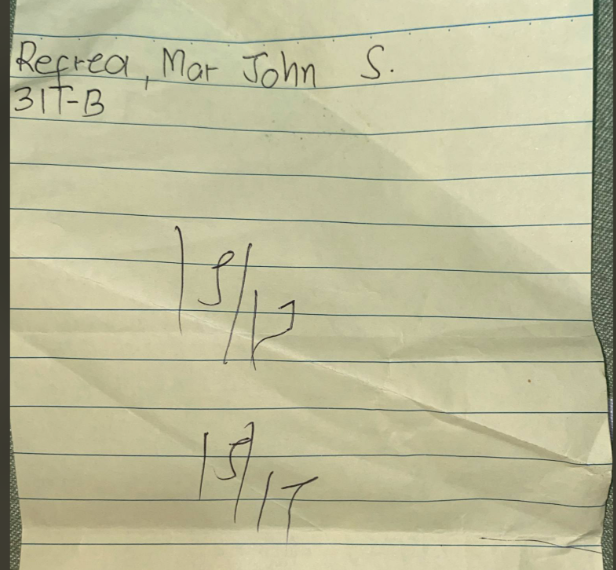 Refrea, Mar John S.
3IT-B
15/17
15/17